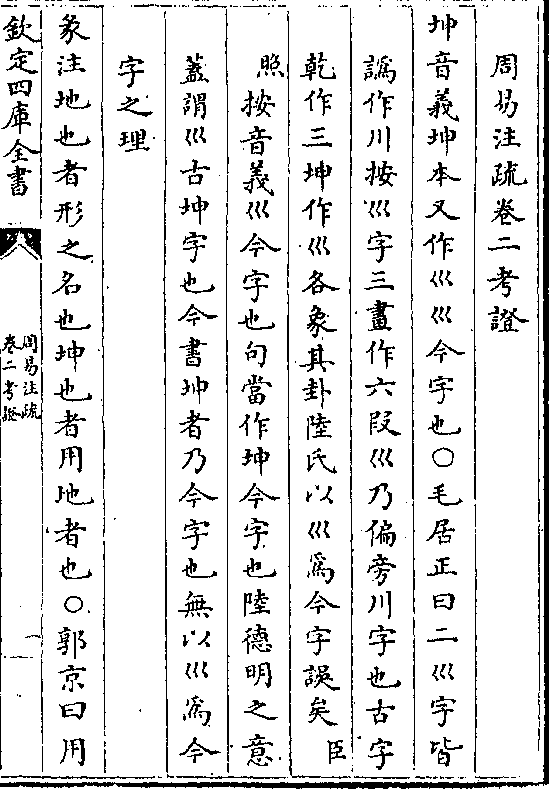 周易注疏卷二考證
坤音義坤本又作巛巛今字也○毛居正曰二巛字皆
譌作川按巛字三畫作六段巛乃偏旁川字也古字
乾作三坤作巛各象其卦陸氏以巛爲今字誤矣臣
照按音義巛今字也句當作坤今字也陸德明之意
蓋謂巛古坤字也今書坤者乃今字也無以巛爲今
字之理
彖注地也者形之名也坤也者用地者也○郭京曰用
欽定四庫全書
周易注疏
卷二考證
一